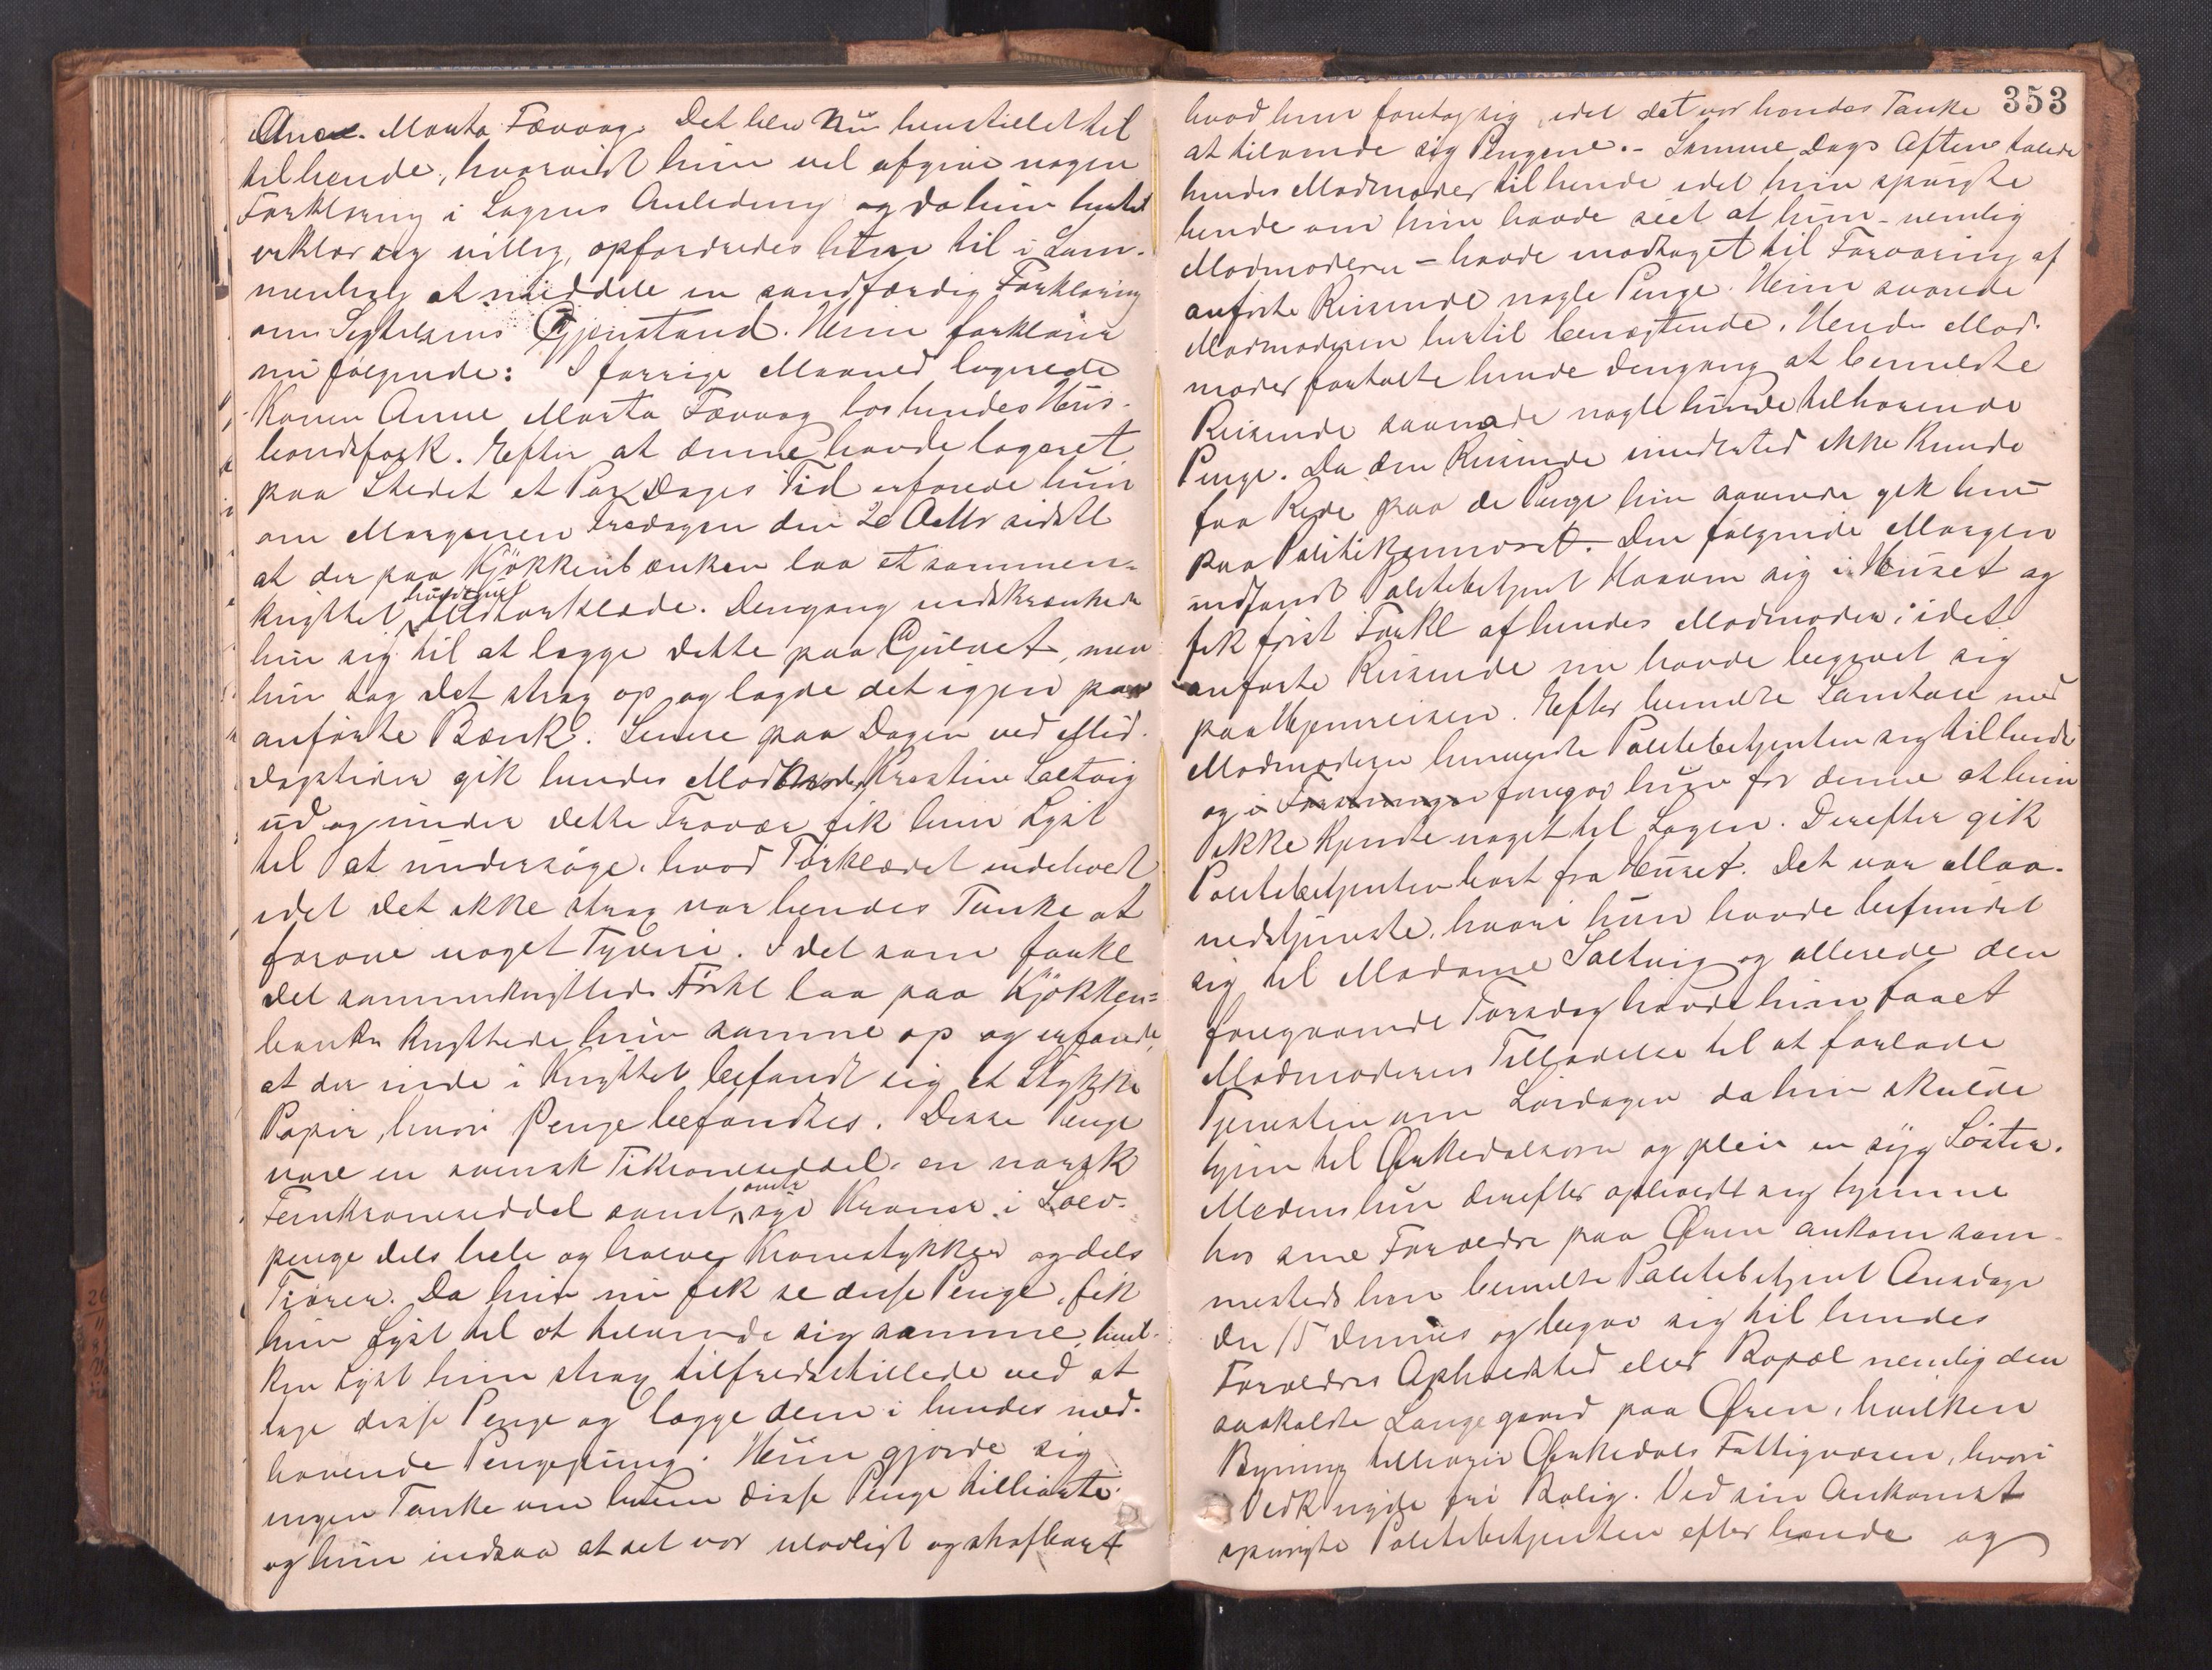 Anne Marta Fævaag. Det blev nu henstillet til
til hende, hvorvidt hun vil afgive nogen
Forklaring i Sagens Anledning og da hun hertil
erklær sig villig, opfordredes hun til i Sam-
menhæng at meddele en sandfærdig Forklaring
om Sigtelsens Gjenstand. Hun forklarer
nu følgende: I forrige Maaned logerede
Konen Anne Marta Fævaag hos hendes Hus-
bondsfolk. Efter at denne havde logeret
paa Stedet et Par Dages Tid erfarede hun
om Morgenen Fredagen den 2 sidstl
at der paa Kjøkkenbænken laa et sammen-
knyttet Tørklæde. Dengang indskrænkede
hun sig til at lægge dette paa Gulvet, men
hun tog det strax op og lagde det igjen paa
anførte Bænk. Senere paa Dagen ved Mid-
dagstider gik hendes Madmoder Kristine Saltvig
ud og under dette Fravær fik hun Lyst
til at undersøge, hvad Tørklædet indeholdt
idet det ikke strax var hendes Tanke at
forøve noget Tyveri. I det som forkl
det sammenknyttede Tørkl laa paa Kjøkken-
bænken knyttede hun samme op og erfarede,
at der inde i Knyttet befandt sig et Stykke
Papir, hvori Penge befandtes. Disse Penge
vare en svensk Tikroneseddel, en norsk
Femkroneseddel samt omtr syv Kroner i Sølv-
penge dels hele og halve Kronestykker og dels
Tiører. Da hun nu fik se disse Penge, fik
hun Lyst til at tilvende sig samme, hvil-
ken Lyst hun strax tilfredsstillede ved at
tage disse Penge og lægge dem i hendes med-
havende Pengepung. Hun gjorde sig
ingen Tanke om hvem disse Penge tilhørte
og hun indsaa at det var ulovligt og strafbart
353
hvad hun foretog sig, idet det var hendes Tanke
at tilvende sig Pengene. - Samme Dags Aften talede
hendes Madmoder til hende idet hun spurgte
hende om hun havde seet at hun - nemlig
Madmoderen - havde modtaget til Forvaring af
anførte Reisende nogle Penge. Hun svarede
Madmoderen hertil benægtende. Hendes Mad-
moder fortalte hende dengang at bemeldte
Reisende savnede nogle hende tilhørende
Penge. Da den Reisende imidlertid ikke kunde
faa Rede paa de Penge hun savnede gik hun
paa Politikammeret. Den følgende Morgen
indfandt Politibetjent sig i Huset og
fik først Forkl af hendes Madmoder, idet
anførte Reisende nu havde begivet sig
paa Hjemreisen. Efter bemeldte Samtale med
Madmoderen henvendte Politibetjenten sig til hende
og foregav hun for denne at hun
ikke kjendte noget til Sagen. Derefter gik
Politibetjenten bort fra Huset. Det var Maa-
nedstjeneste, hvori hun havde befundet
sig til Madame Saltvig og allerede den
foregaaende Torsdag havde hun faaet
Madmoderens Tilladelse til at forlade
Tjenesten om Lørdagen da hun skulde
hjem til Ørkedalsøren og pleie en syg Søster.
Medens hun derefter opholdt sig hjemme
hos sine Forældre paa Øren ankom sam-
mesteds hen bemeldte Politibetjent Onsdage
den 15 dennes og begav sig til hendes
Forældres Opholdssted eller Bopæl nemlig den
saakaldte Langegaard paa Øren, hvilken
Bygning tilhører Ørkedals Fattigvæsen, hvori
Vedk nyde fri Bolig. Ved sin Ankomst
spurgte Politibetjenten efter hende og